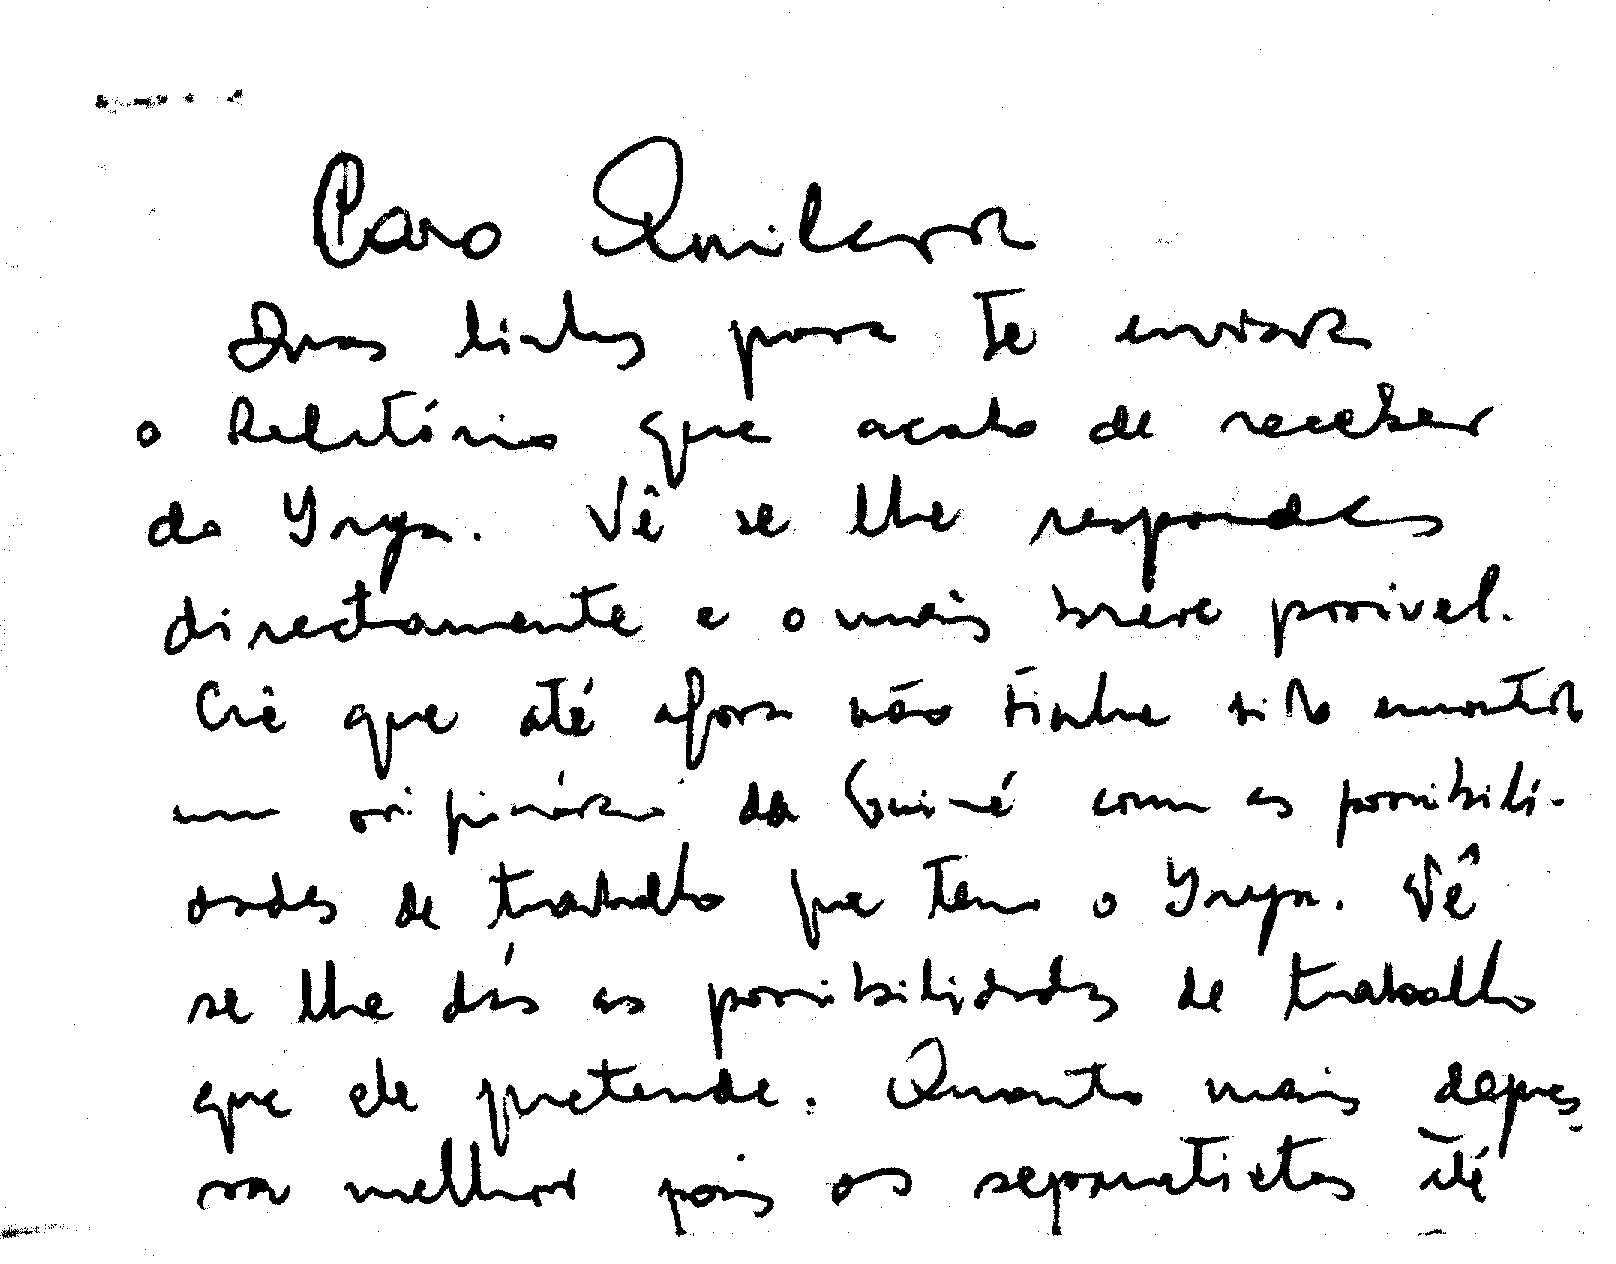 Caro Quilerra
Duas linhas para te enviar
o Relatório que acabo de receber
do Yrga. Vê se lhe respondes
directamente e o mais breve possivel.
Crê que até agora não tinha sido
um originário da Guiné com as possibili-
dades de trabalho que tem o Yrga. Vê
se lhe dás as possibilidades de trabalho
que ele pretende. Quanto mais depres
sa melhor pois os separatistas até